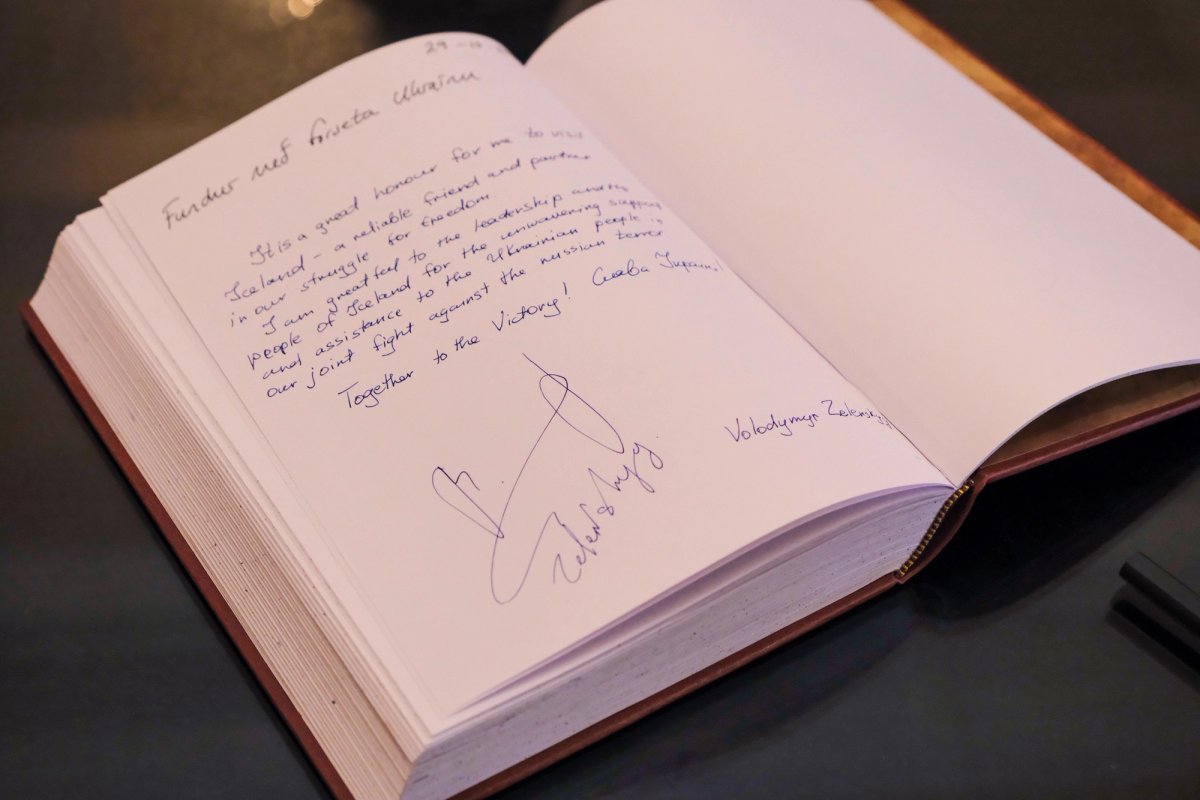 29
Fundur með forseta Ukrainu
It is a great honour for me to visit
Iceland – a reliable friend and partner
in our struggle for freedom
I am greatful to the leadership and the
people of Iceland for the unwavering support
and assistance to the Ukrainian people in
our joint fight against the russian terror.
Together to the Victory! Слава Україні!
Volodymyr Zelenskyy
Zelenskyy